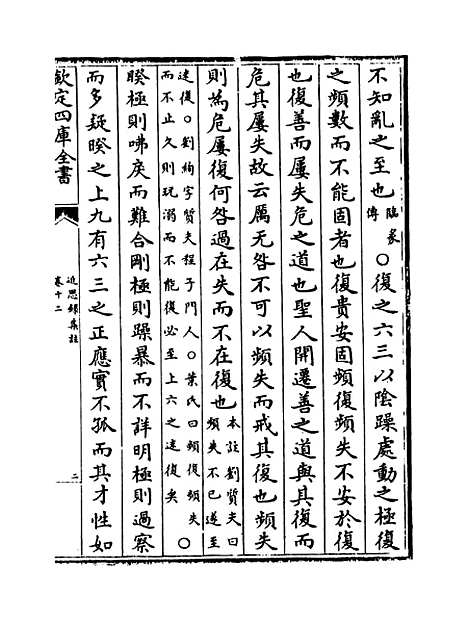 不知亂之至也臨彖傳○復之六三以陰躁處動之極復
之頻數而不能固者也復貴安固頻復頻失不安於復
也復善而屢失危之道也聖人開遷善之道與其復而
危其屢失故云厲无咎不可以頻失而戒其復也頻失
則為危屢復何咎過在失而不在復也本註劉質夫曰頻失不已遂至
迷復○劉絢字質夫程子門人○葉氏曰頻復頻失而不止久則玩溺而不能復必至上六之迷復矣○
睽極則咈戾而難合剛極則躁暴而不詳明極則過察
而多疑睽之上九有六三之正應實不孤而其才性如
欽定四庫全書
近思錄集註
卷十二
二